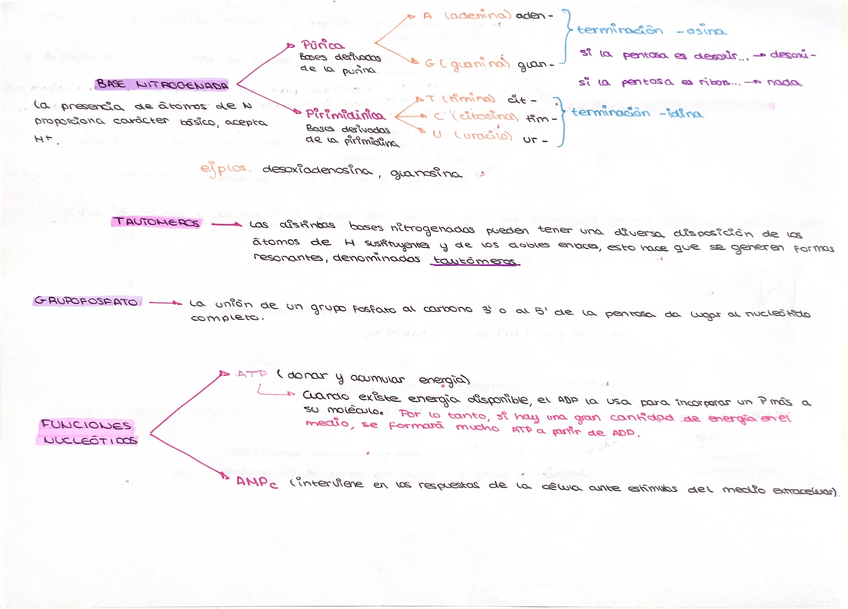 A (adenina) aden-
terminación -osina
Púrica
Bases derivadas
de la purina.
si la pentosa es desoxir... → desoxi-
G (guanina) guan-
BASE NITROGENADA
si la pentosa es ribon... → nada
La presencia de átomos de N
proporciona carácter básico, acepta
H+.
Pirimidínica
Bases derivadas
de la pirimidina
T (timina) cit-
C (citosina) tim-
U (uracilo) ur-
terminación -idina
ejplos. desoxiadenosina, guanosina
TAUTÓMEROS → Las distintas bases nitrogenadas pueden tener una diversa disposición de los
átomos de H sustituyentes y de los dobles enlaces, esto hace que se generen formas
resonantes, denominadas tautómeros
GRUPO FOSFATO → La unión de un grupo fosfato al carbono 3' o al 5' de la pentosa da lugar al nucleótido
completo.
ATP (donar y acumular energía)
Cuando existe energía disponible, el ADP la usa para incorporar un P más a
su molécula. Por lo tanto, si hay una gran cantidad de energía en el
medio, se formará mucho ATP a partir de ADD.
FUNCIONES
NUCLEÓTIDOS
AMPc (interviene en las respuestas de la célula ante estímulos del medio extracelular).